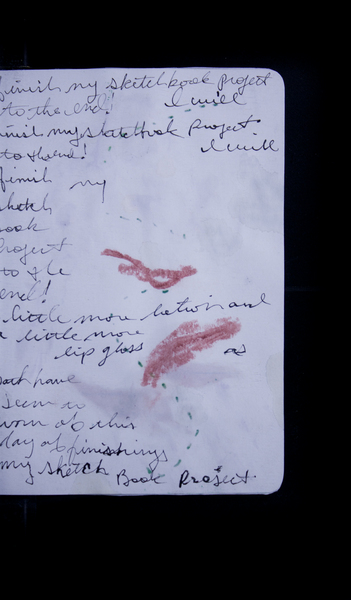 finish my sketchbook project
to the end! I will
finish my sketchbook Project
to the end! I will
finish my
sketch
book
Project
to the
end!
little more lotion and
a little more
lip gloss as
both have
seem
worn at this
day of finishings
my sketch Book Project.